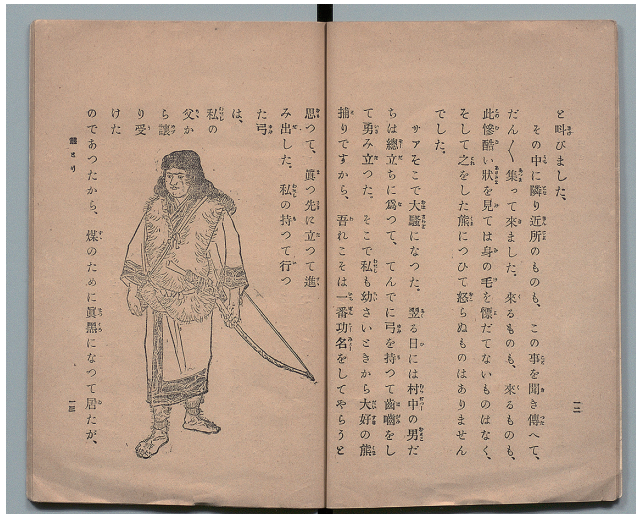 と叫びました、
その中に隣り近所のものも、この事を聞き傳へて、
だん〱集つて來ました、來るものも、來るものも、
此慘酷い狀を見ては身の毛を慓だてないものはなく、
そして之をした熊につひて怒らぬものはありません
でした。
サアそこで大騷になつた。翌る日には村中の男だ
ちは總立ちに爲つて、てんでに弓を持つて齒嚙をし
て勇み立つた。そこで私も幼さいときから大好の熊
捕りですから、吾れこそは一番功名をしてやらうと
一二
思つて、眞つ先に立つて進
み出した。私の持つて行つ
た弓
は、
私の
父か
ら讓
り受
けた
のであつたから、煤のために眞黑になつて居たが、
熊とり
一三